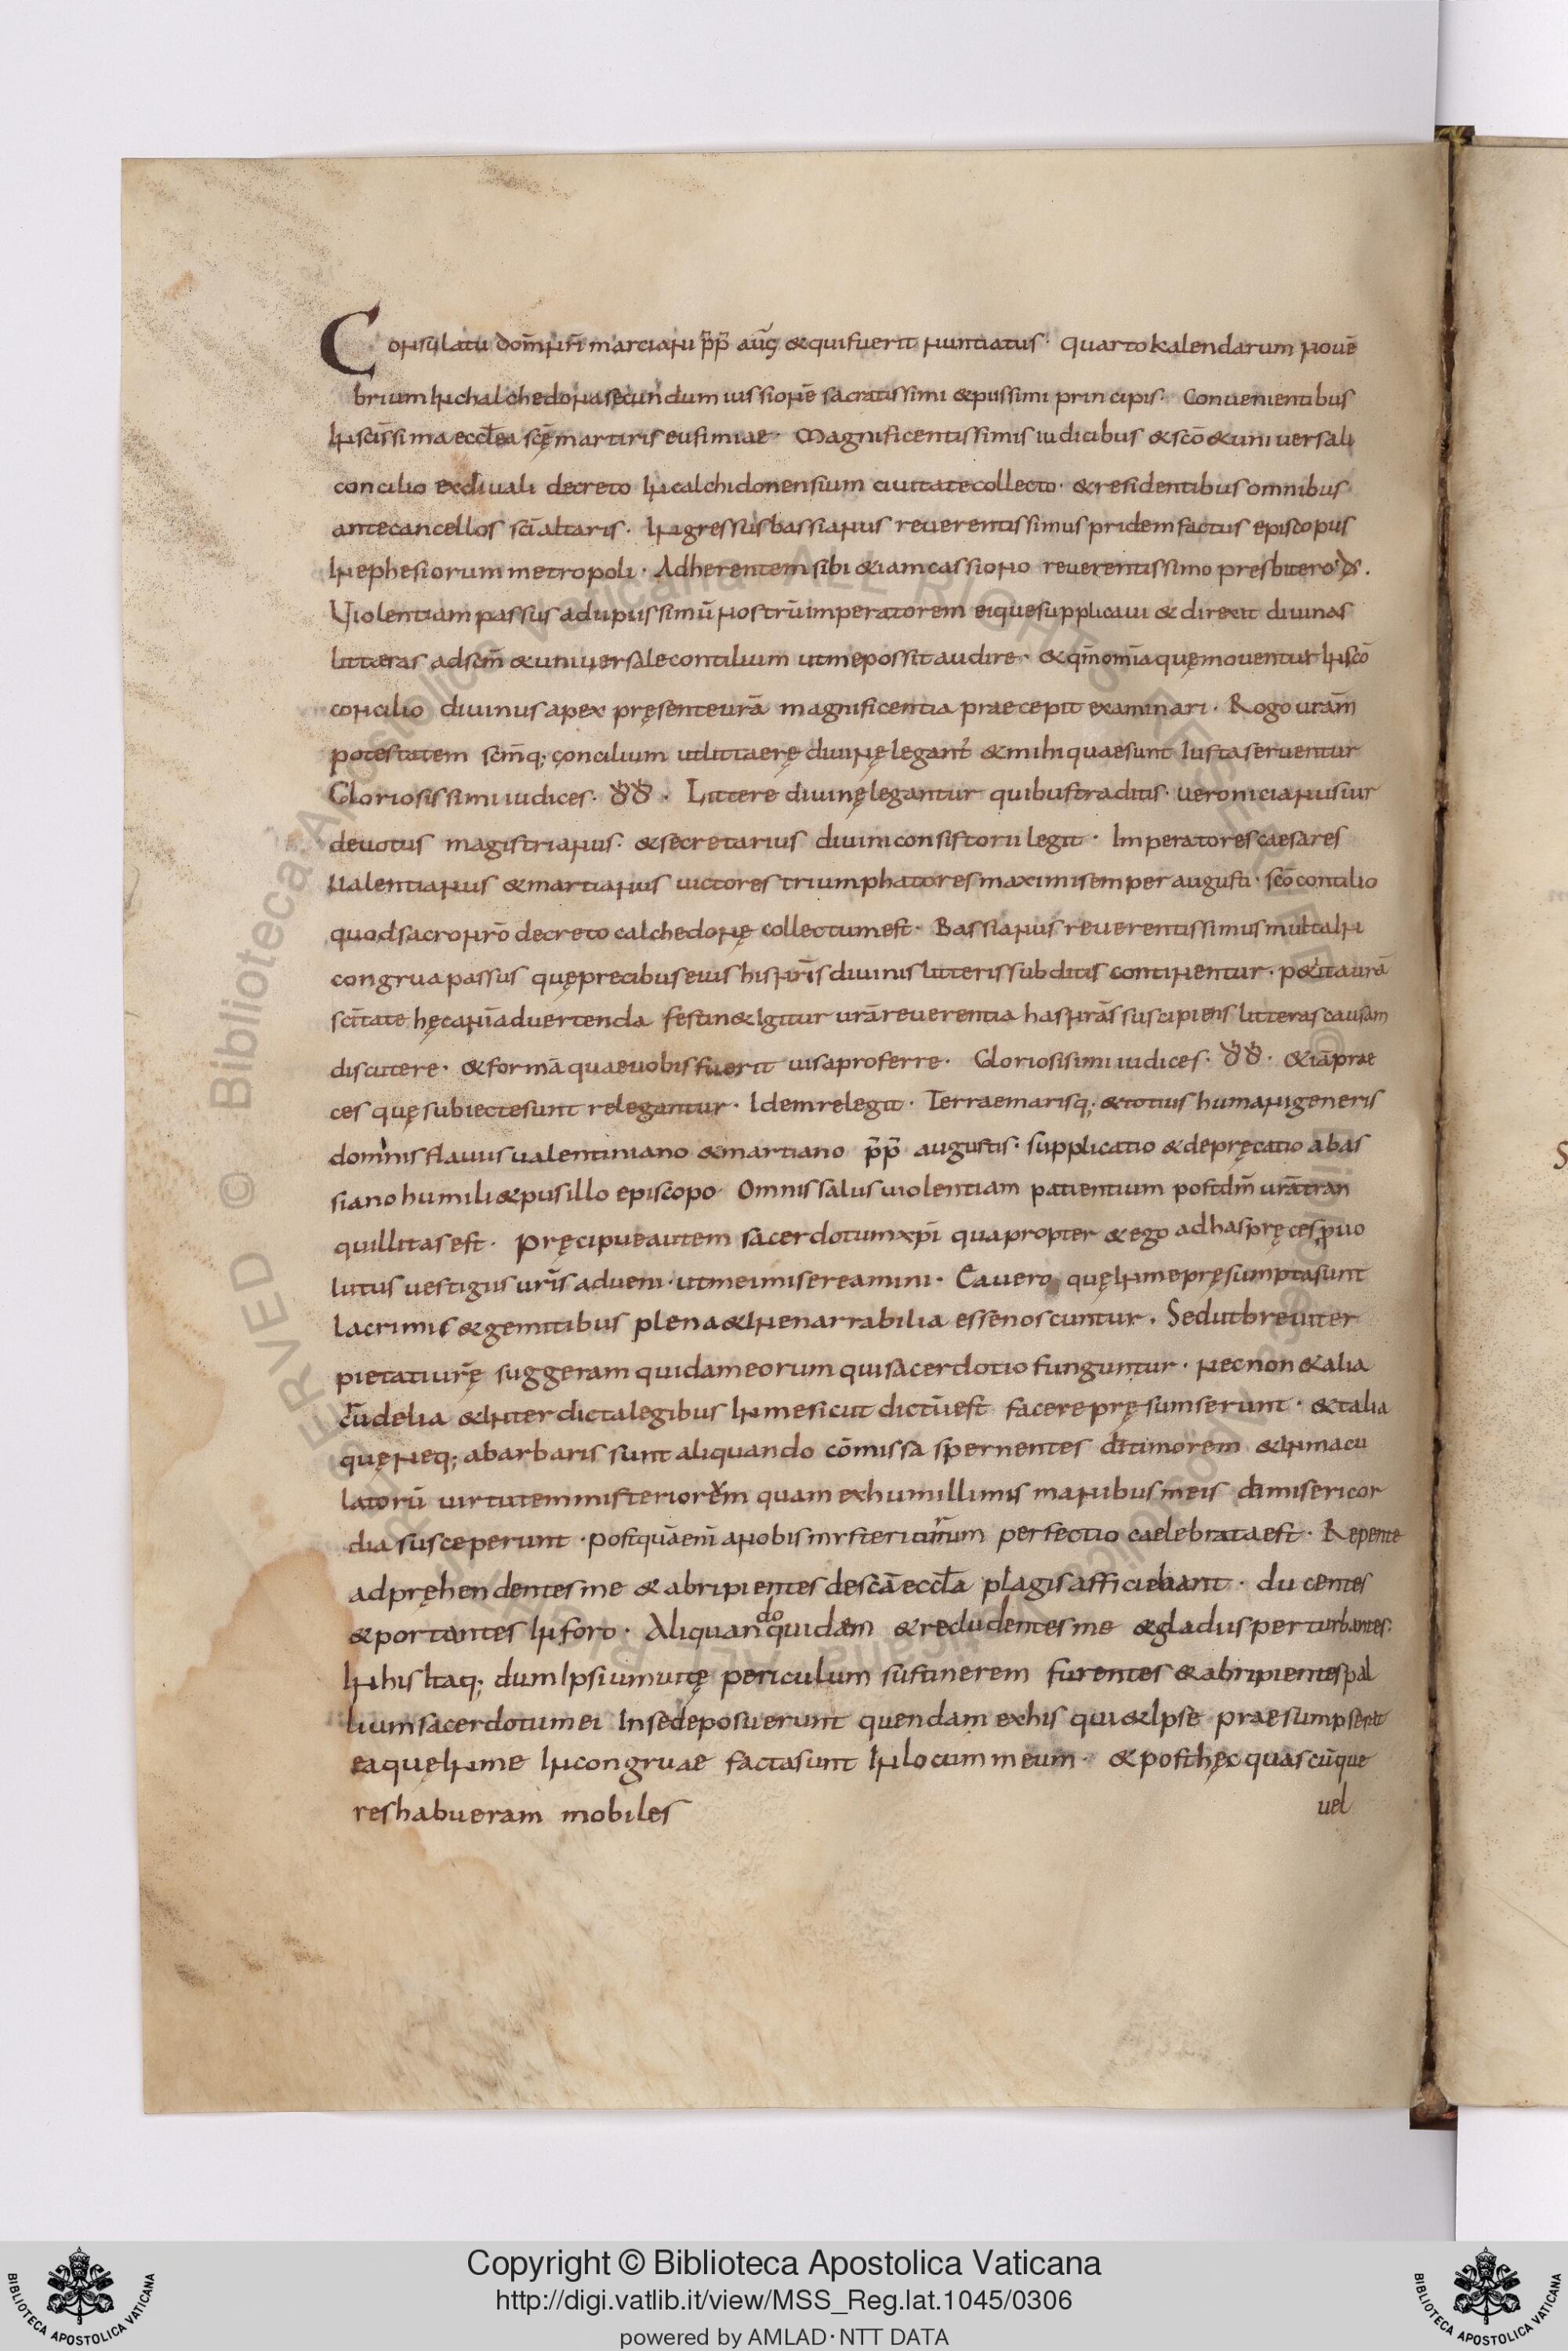 Consulatu dom̄ nr̄i marciani p̄p̄ aug̃ & qui fuerit nuntiatus · quarto kalendarum nouē
brium in chalchedona secundum iussionē sacratissimi & piissimi principis · Conuenientibus
in sc̄issima eccl̄ea sc̄ę martiris eufimiae · Magnificentissimis iudicibus & sc̄o & uniuersali
concilio ex diuali decreto in calchidonensium ciuitate collecto · & residentibus omnibus
ante cancellos sc̄i altaris · Ingressus bassianus reuerentissimus pridem factus episcopus
in ephesiorum metropoli · Adherentem sibi & iam cassiono reuerentissimo presbitero đ .
Violentiam passus adii piissimū nostrū imperatorem eique supplicaui & direxit diuinas
littæras ad sc̄m̄ & uniuersale concilium ut me possit audire · & qm̄ om̄ia quę mouentur in sc̄o
concilio diuinus apex pręsente ur̄ā magnificentia praecepit examinari · Rogo ur̄ām
potestatem sc̄m̄q; concilium ut littaerę diuinę legant᷑ & mihi quae sunt iusta seruentur
Gloriosissimi iudices · đđ · Littere diuinę legantur quibus traditis · ueronicianus uir
deuotus magistrianus · & secretarius diuini consistorii legit · Imperatores caesares
ualentianus & martianus uictores triumphatores maximi semper augusti · sc̄o concilio
quod sacro nr̄o decreto calchedonę collectum est · Bassianus reuerentissimus multa in
congrua passus quę precibus eius his nr̄is diuinis litteris subditis continentur · petit a ur̄ā
sc̄itate hęc animaduertenda festin& igitur ur̄ā reuerentia has nr̄ās suscipiens litteras causam
discutere · & formā quae uobis fuerit uisa proferre · Gloriosisimi iudices · đđ · & iā prae
ces quę subiecte sunt relegantur · Idem relegit · Terrae marisq; & totius humani generis
dominis flauiis ualentiniano & martiano p̄p̄ augustis · supplicatio & depręcatio a bas
siano humili & pusillo episcopo · Omnis salus uiolentiam patientium post dm̄ ur̄ā tran
quillitas est · Pręcipue autem sacerdotum xp̄i quapropter & ego ad has pręces puo
lutus uestigiis ur̄īs adueni · ut mei misereamini · Ea uero quę in me pręsumpta sunt
lacrimis & gemitibus plena & inenarrabilia esse noscuntur . Sed ut breuiter
pietati ur̄ę suggeram quidam eorum qui sacerdotio funguntur · nec non & alia
crudelia & interdicta legibus in me sicut dictū est facere pręsumserunt · & talia
quę neq; a barbaris sunt aliquando cōmissa spernentes dī timorem & inmacu
latorū uirtutem misteriorem quam ex humillimis manibus meis dī misericor
dia susceperunt · postquā enī a nobis misteriorum perfectio caelebrata est · Repente
adpręhendentes me & abripientes de sc̄ā eccl̄a plagis afficiebant · ducentes
& portantes in foro · Aliquando quidam & recludentes me & gladiis perturbantes ·
In his itaq; dum ipsium uitę periculum sustinerem furentes & abripientes pal
lium sacerdotum ei in se deposuerunt quendam ex his qui & ipse praesumpserat
ea quę in me incongruae facta sunt in locum meum · & post hęc quascūque
res habueram mobiles
uel
Copyright © Biblioteca Apostolica Vaticana
http://digi.vatlib.it/view/MSS_Reg.lat.1045/0306
powered by AMLAD · NTT DATA